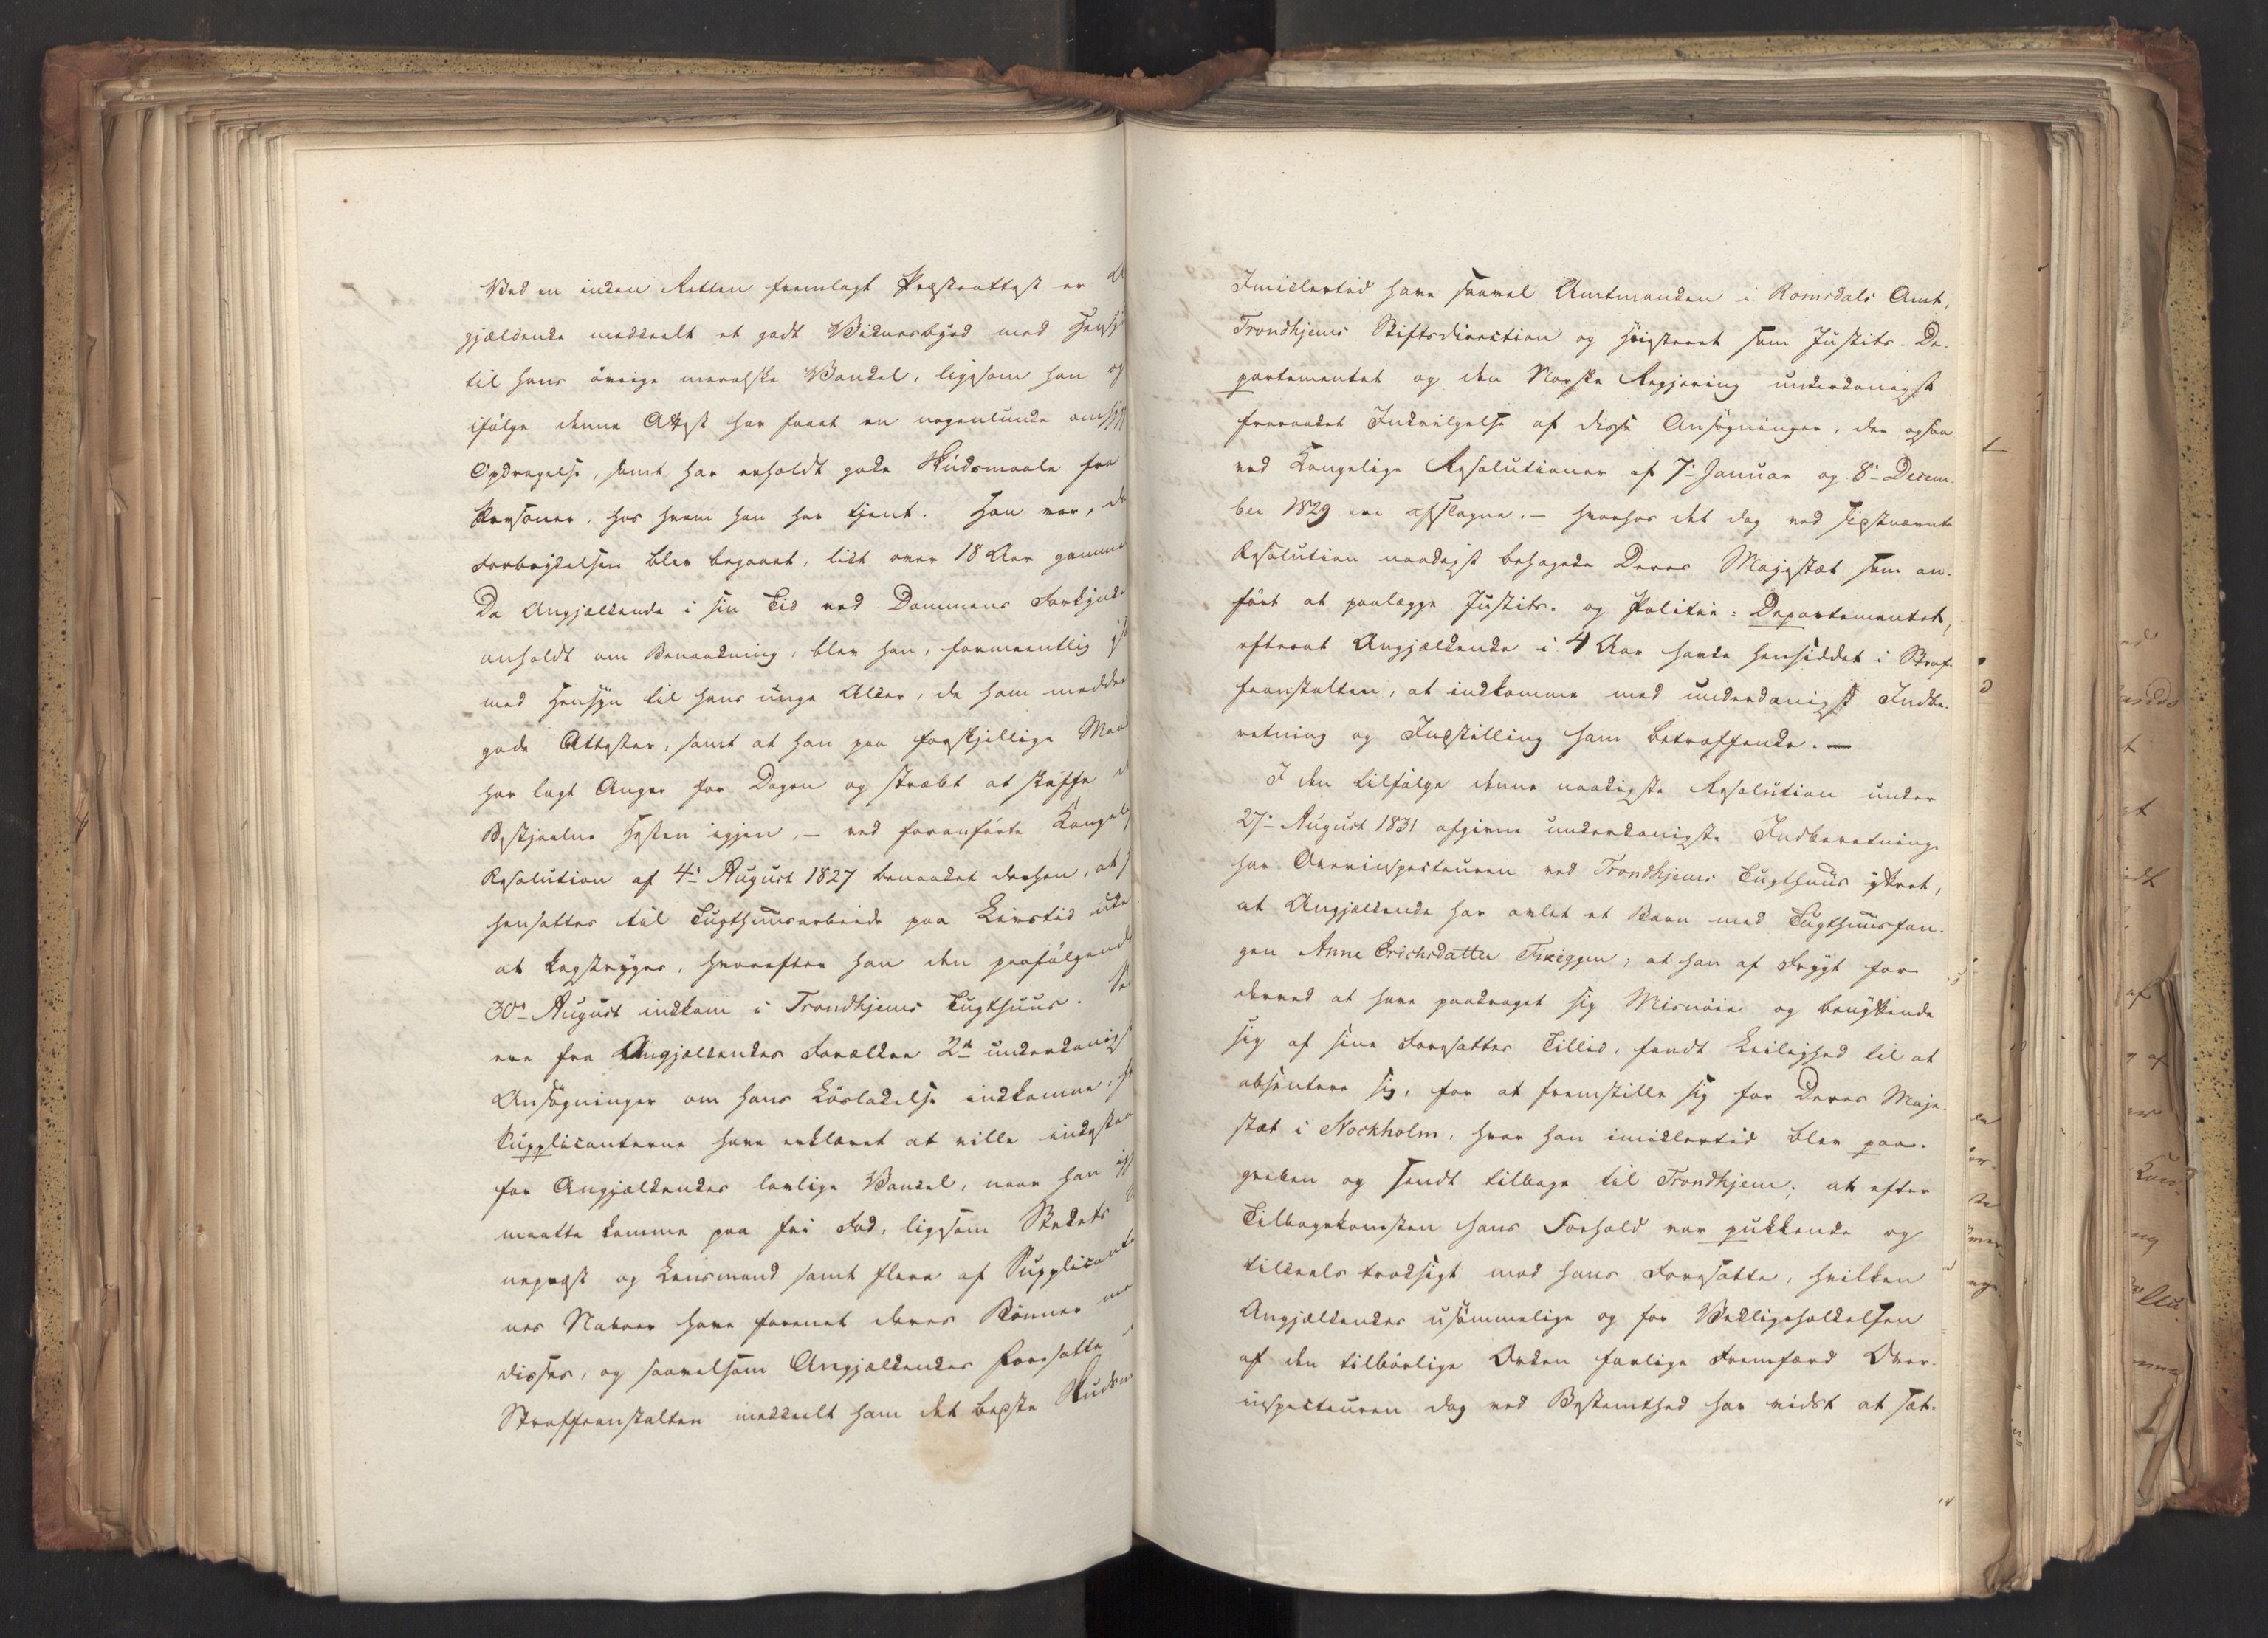 Ved en inden Retten fremlagt Præsteattest er
gjældende meddeelt et godt Vidnesbyrd med Hensy
til hans øvrige moralske Vandel, ligesom han og
ifølge denne Attest har faaet en nogenlunde
Opdragelse, samt har erholdt gode Skudsmaale fra
Personer, hos hvem han har tjent. Han var, da
Forbrydelsen blev begaaet, lidt over 18 Aar gammel
Da Angjældende i sin Tid ved Dommens Forkynde
anholdt om Benaadning, blev han, formeentlig
med Hensyn til hans unge Alder, de ham meddee
gode Attester, samt at han paa forskjellige Maa
har lagt Anger for Dagen og stræbt at skaffe
Bestjaalne Hesten igjen, – ved foranførte Kongel
Resolution af 4de August 1827 benaadet derhen, at
hensættes til Tugthuusarbeide paa Livstid uden
at kagstryges, hvorefter han den paafølgende
30te August indkom i Trondhjems Tugthuus. Se
ere fra Angjældendes Forældre 2de underdanigst
Ansøgninger om hans Løsladelse indkomne, h
Supplicanterne have erklæret at ville indestaa
for Angjældendes lovlige Vandel, naar han
maatte komme paa fri Fod, ligesom Stedets
nepræst og Lensmand samt flere af Supplicante
nes Naboer have forenet deres Bønner me
disses, og saavelsom Angjældendes Foresatte
Straffeanstalten meddeelt ham det bedste Skudsm
Imidlertid have saavel Amtmanden i Romsdals Amt,
Trondhjems Stiftsdirection og Høiesteret som Justits-De-
partementet og den Norske Regjering underdanigst
fraraadet Indvilgelse af disse Ansøgninger, der ogsaa
ved Kongelige Resolutioner af 7de Januar og 8de Decem-
ber 1829 ere afslagne. – hvorhos det dog ved sidstnævnte
Resolution naadigst behagede Deres Majestæt som an-
ført at paalægge Justits- og Politie-Departementet,
efterat Angjældende i 4 Aar havde hensiddet i Straf-
feanstalten, at indkomme med underdanigst Indbe-
retning og Indstilling ham betræffende. –
I den tilfølge denne naadigste Resolution under
27de August 1831 afgivne underdanigste Indberetning
har Overinspecteuren ved Trondhjems Tugthuus ytret,
at Angjældende har avlet et Barn med Tugthuusfan-
gen Anne Erichsdatter Fixeggen; at han af Frygt for
derved at have paadraget sig Misnøie og benyttende
sig af sine Foresattes Tillid, fandt Leilighed til at
absentere sig, for at fremstille sig for Deres Maje-
stæt i Stockholm, hvor han imidlertid blev paa-
greben og sendt tilbage til Trondhjem; at efter
Tilbagekomsten hans Forhold var pukkende og
tildeels trodsigt mod hans Foresatte, hvilken
Angjældendes usømmelige og for Vedligeholdelsen
af den tilbørlige Orden farlige Fremfærd Over-
inspecteuren dog ved Bestemthed har vidst at sæt-